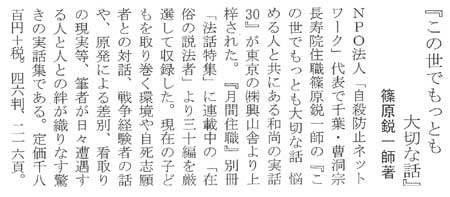 『この世でもっとも
大切な話』
篠原鋭一師著
NPO法人「自殺防止ネット
ワーク」代表で千葉・曹洞宗
長寿院住職篠原鋭一師の『こ
の世でもっとも大切な話 悩
める人と共にある和尚の実話
30』が東京の㈱興山舎より上
梓された。『月刊住職』別冊
「法話特集」に連載中の「在
俗の説法者」より三十編を厳
選して収録した。現在の子ど
もを取り巻く環境や自死志願
者との対話、戦争経験者の話
や、原発による差別、看取り
の現実等、筆者が日々遭遇す
る人と人との絆が織りなす驚
きの実話集である。定価千八
百円+税。四六判、二一六頁。